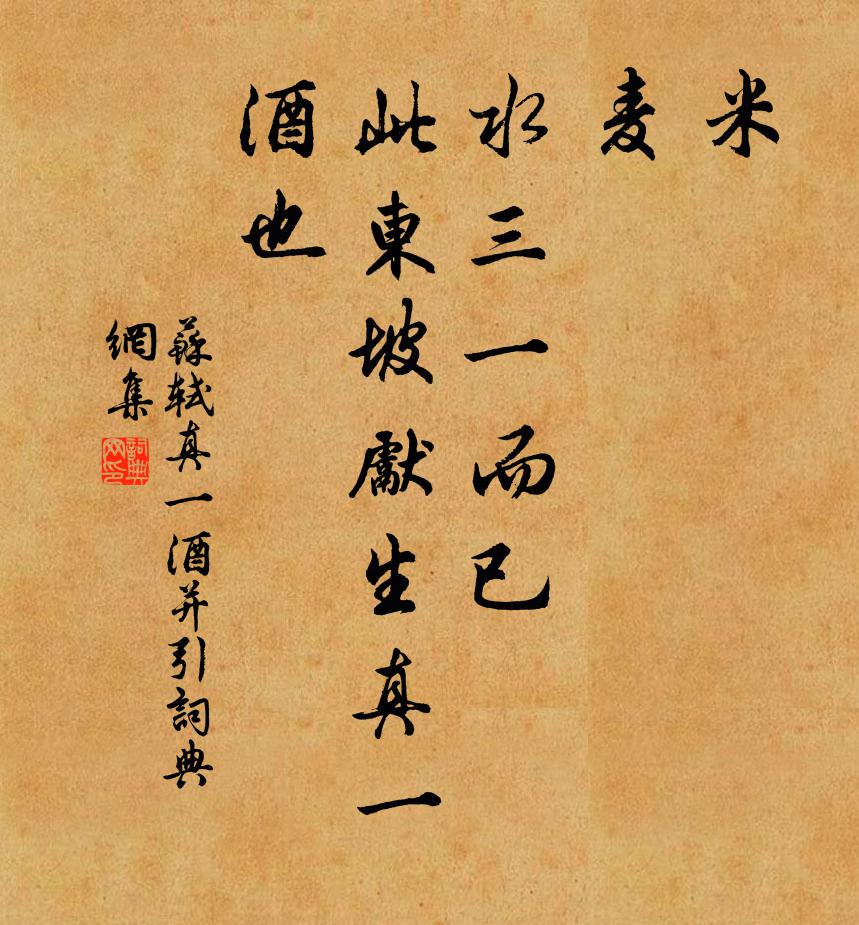 米
麦
水三一而已
此東坡獻生真一
酒也
蘇軾真一酒并引詞典
網集
詞典
网印